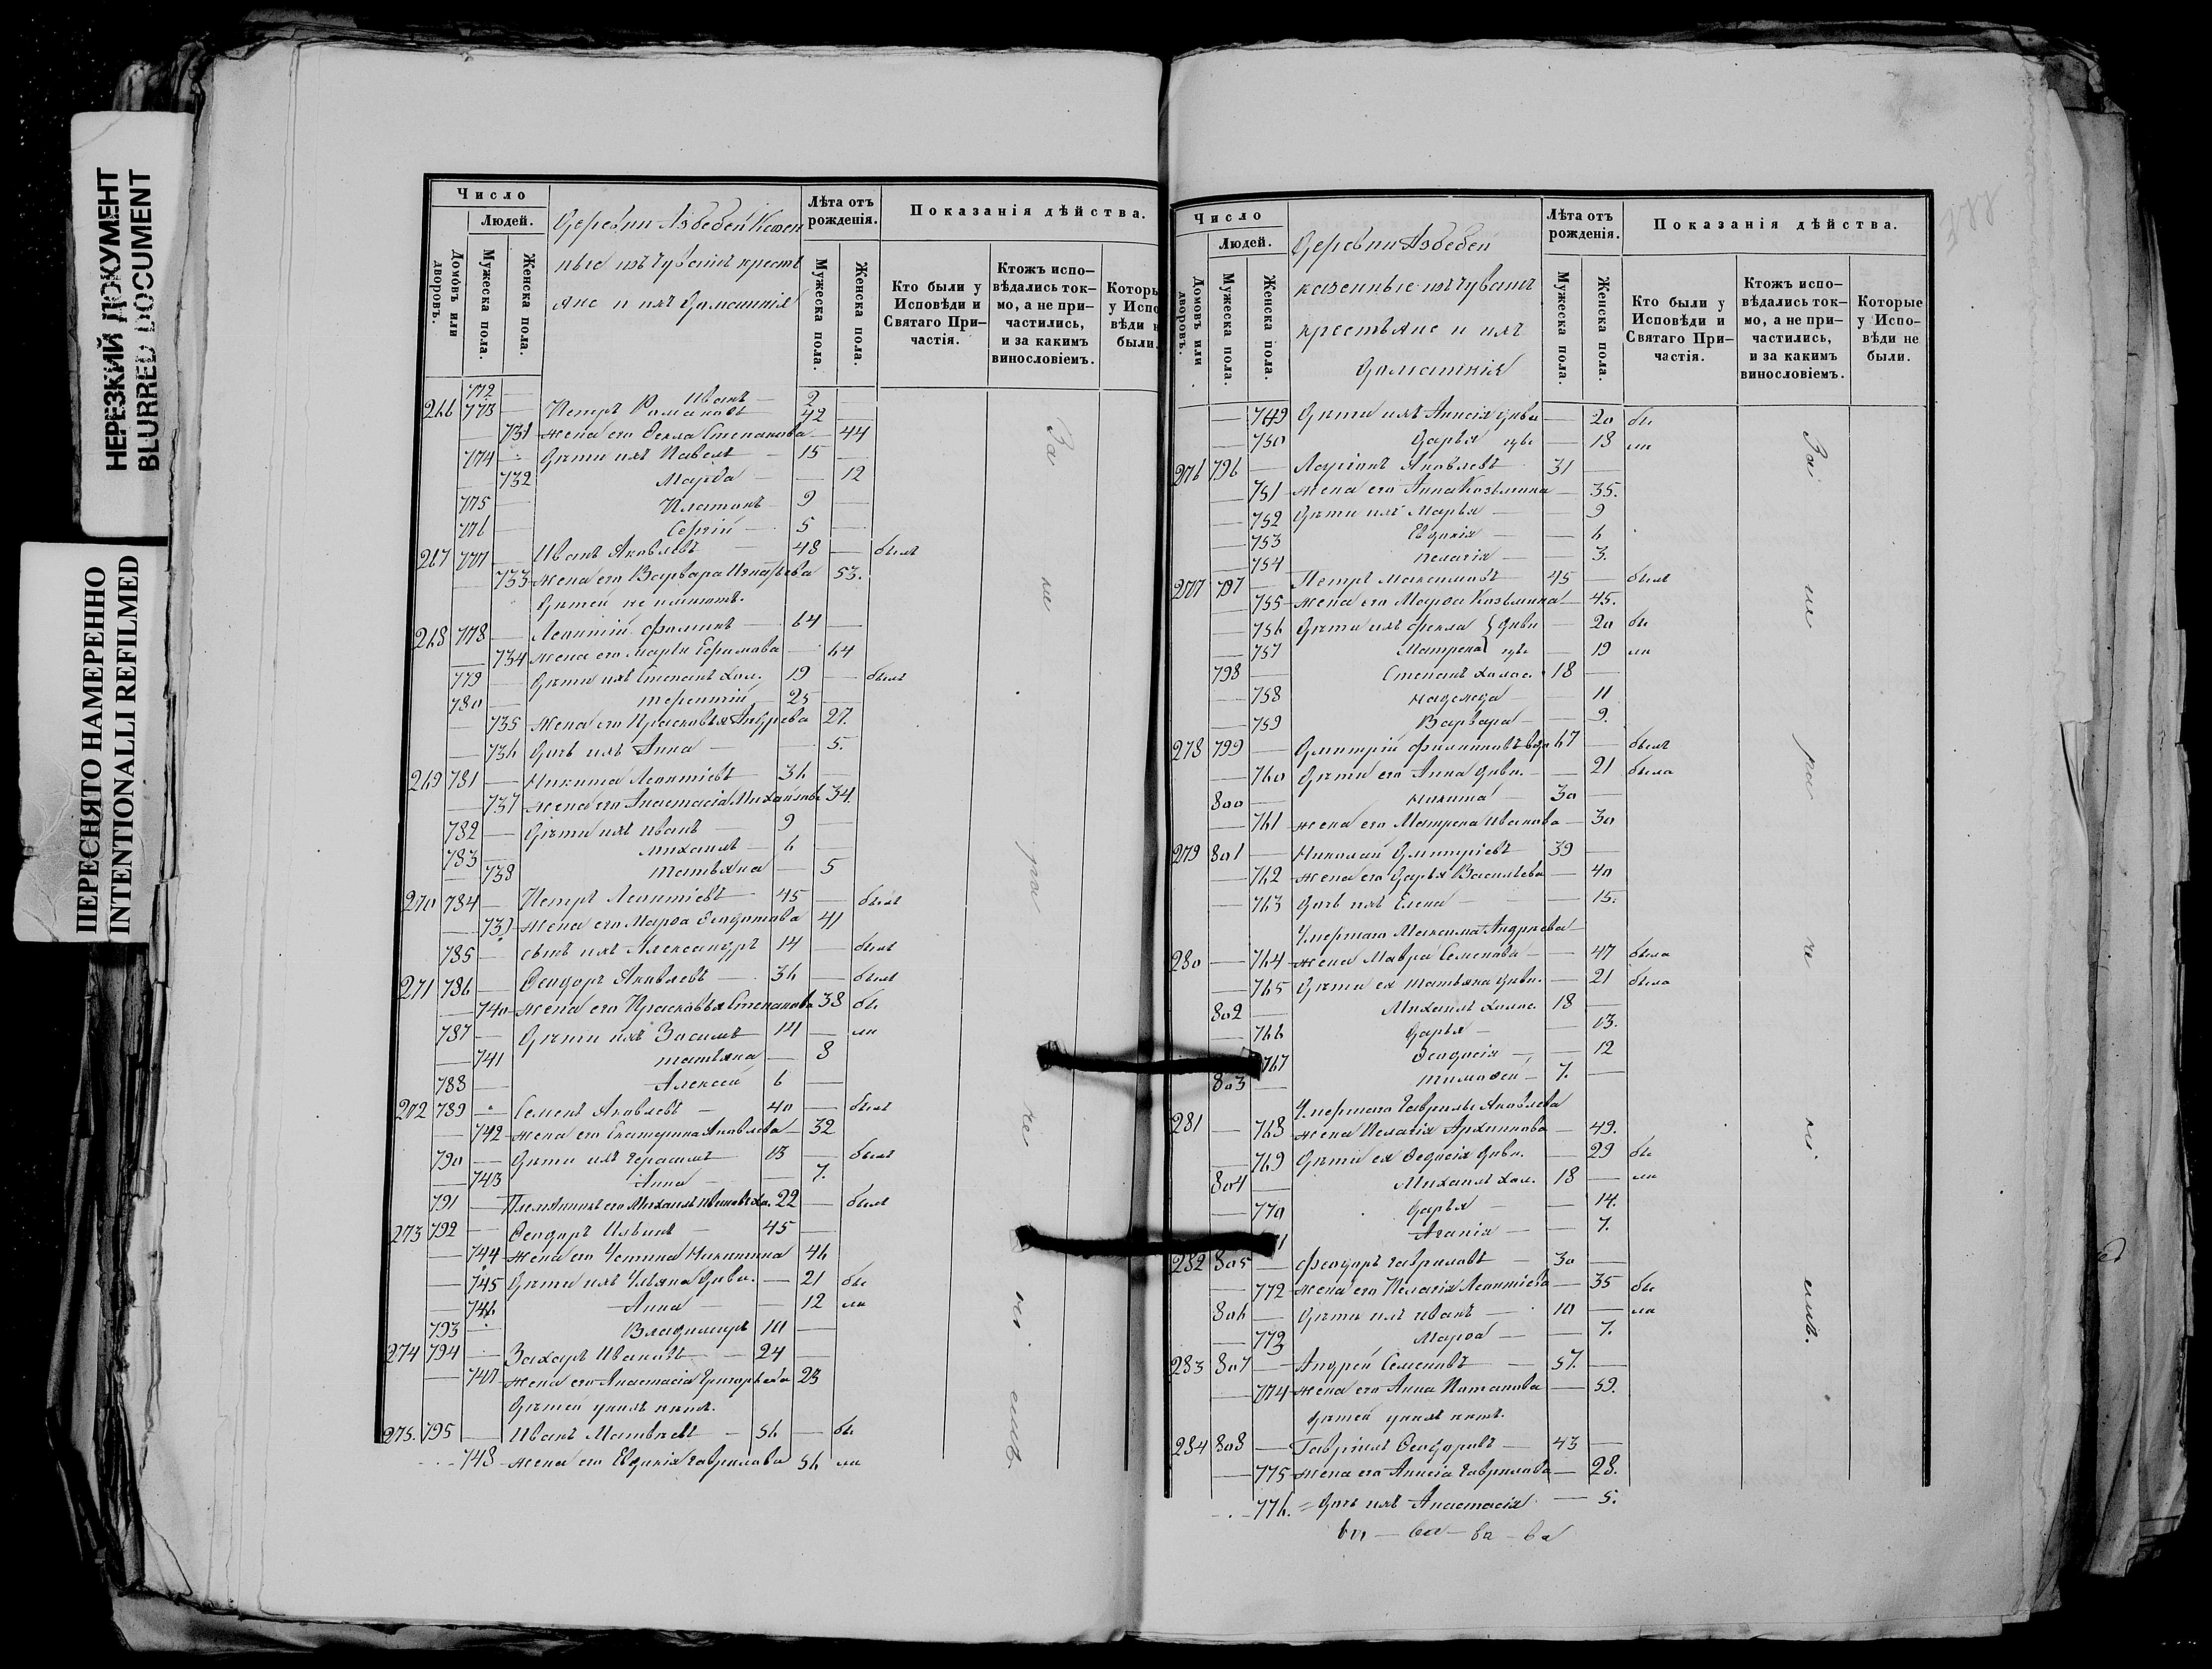 НЕРЕЗКИЙ ДОКУМЕНТ
BLURRED DOCUMENT
ПЕРЕСНЯТО НАМЕРЕННО
INTENTIONALLI REFILMED
Число
Людей.
Домовъ или дворовъ.
Мужеска пола.
Женска пола.
Деревни Азбебей Казен
ные изъ чувашъ кресть
яне и ихъ домашнія
Лѣта отъ рожденія.
Мужеска пола.
Женска пола.
Показанія дѣйства.
Кто были у Исповѣди и Святаго При-частія.
Ктожъ испо-вѣдались ток-мо, а не при-частились, и за какимъ винословіемъ.
Которы у Испо вѣди н были.
772 — Иванъ — 2
266 773 — Петръ Романовъ 42 —
— 731 жена его Ѳекла Степанова — 44
774 — Дѣти ихъ Павелъ — 15 —
— 732 Марѳа — — 12
775 — Платонъ 9 —
776 — Сергій — 5 —
267 777 — Иванъ Яковлевъ — 48 — былъ
733 жена его Варвара Игнатьева 53.
Дѣтей не имѣютъ.
268 778 — Леонтій Фоминъ — 64 —
— 734 жена его Марья Ефимова — 64
779 — Дѣти ихъ Степанъ хол. 19 — былъ
780 — Терентій 25 —
— 735 жена его Прасковья Андрева 27.
— 736 Дочь ихъ Анна — — 5.
269 781 — Никита Леонтіевъ 36 —
— 737 жена его Анастасія Михайлова 34.
782 — Дѣти ихъ Иванъ — 9 —
783 — Михаилъ — 6 —
— 738 Татьяна — 5
270 784 — Петръ Леонтіевъ 45 — былъ
— 739 жена его Марѳа Ѳеодотова 41
785 — сынъ ихъ Александръ 14 — былъ
271 786 — Ѳеодоръ Яковлевъ — 36 — былъ
— 740 жена его Прасковья Степанова 38 бы
787 — Дѣти ихъ Василій 14 — ли
— 741 Татьяна — 8
788 — Алексей 6 —
272 789 — Семенъ Яковлевъ — 40 — былъ
— 742 жена его Екатерина Яковлева — 32
790 — Дѣти ихъ Герасимъ 13 — былъ
— 743 Анна — — 7.
791 — Племянникъ его Михаилъ Ивановъ хо. 22 — былъ
273 792 — Ѳеодоръ Ильинъ — 45 —
— 744 жена его Устина Никитина 46
— 745 Дѣти ихъ Ульяна дѣви. — 21 бы
— 746 Анна — — 12 ли
793 — Владимиръ 10 —
274 794 — Захаръ Ивановъ — 24 —
— 747 жена его Анастасія Григорьева 23
Дѣтей у нихъ нѣтъ.
275. 795 — Иванъ Матвѣевъ — 56 — бы
748 жена его Евдокія Гаврилова 56 ли
За
ли
ро
ко
сть
Число
Людей.
Домовъ или дворовъ.
Мужеска пола.
Женска пола.
Деревни Азбебей
казенные изъ чувашъ
крестьяне и ихъ
домашнія
Лѣта отъ рожденія.
Мужеска пола.
Женска пола.
Показанія дѣйства.
Кто были у Исповѣди и Святаго При-частія.
Ктожъ испо-вѣдались ток-мо, а не при-частились, и за какимъ винословіемъ.
Которые у Испо-вѣди не были.
— 749 Дѣти ихъ Анисія дѣви — 20 бы
— 750 Дарья — 18 ли
276 796 — Логгинъ Яковлевъ 31 —
— 751 жена его Анна Козьмина — 35.
— 752 Дѣти ихъ Марья — — 9
— 753 Евдокія — — 6
— 754 Пелагія — — 3.
277 797 — Петръ Максимовъ 45 — былъ
— 755 жена его Марѳа Козьмина — 45.
— 756 Дѣти ихъ Фекла дѣви — 20 бы
— 757 Матрена — 19 ли
798 — Степанъ холос. 18 —
— 758 Надежда — 11
— 759 Варвара — — 9.
278 799 — Дмитрій Филиповъ вдо 67 — былъ
— 760 Дѣти его Анна дѣви. — 21 была
800 — Никита — 30 —
— 761 жена его Матрена Иванова — 30
279 801 — Николай Дмитріевъ 39 —
— 762 жена его Дарья Васильева — 40
— 763 Дочь ихъ Елена — — 15.
Умершаго Максима Андреева
280 — 764 жена Мавра Семенова — 47 была
— 765 Дѣти ея Татьяна дѣви. — 21 была
802 — Михаилъ холос. 18 —
— 766 Дарья — — 13.
767 Ѳеодосія — — 12
803 — Тимоѳей — 7. —
Умершаго Гаврилы Яковлева
281 — 768 жена Пелагія Архипова — 49.
— 769 Дѣти ея Ѳедосія дѣви. — 29 бы
804 — Михаилъ хол. 18 — ли
— 770 Дарья — — 14.
Агапія — — 7.
282 805 — Феодоръ Гавриловъ — 30 —
— 772 жена его Пелагія Леонтіева — 35 бы
806 — Дѣти ихъ Иванъ — 10 — ли
— 773 Марѳа — — 7.
283 807 — Андрей Семеновъ — 57. —
— 774 жена его Анна Потапова — 59.
Дѣтей у нихъ нѣтъ.
284 808 — Гавріилъ Ѳеодоровъ — 43 —
— 775 жена его Анисія Гаврилова — 28.
776. = Дочь ихъ Анастасія — 5.
За
ли
ро